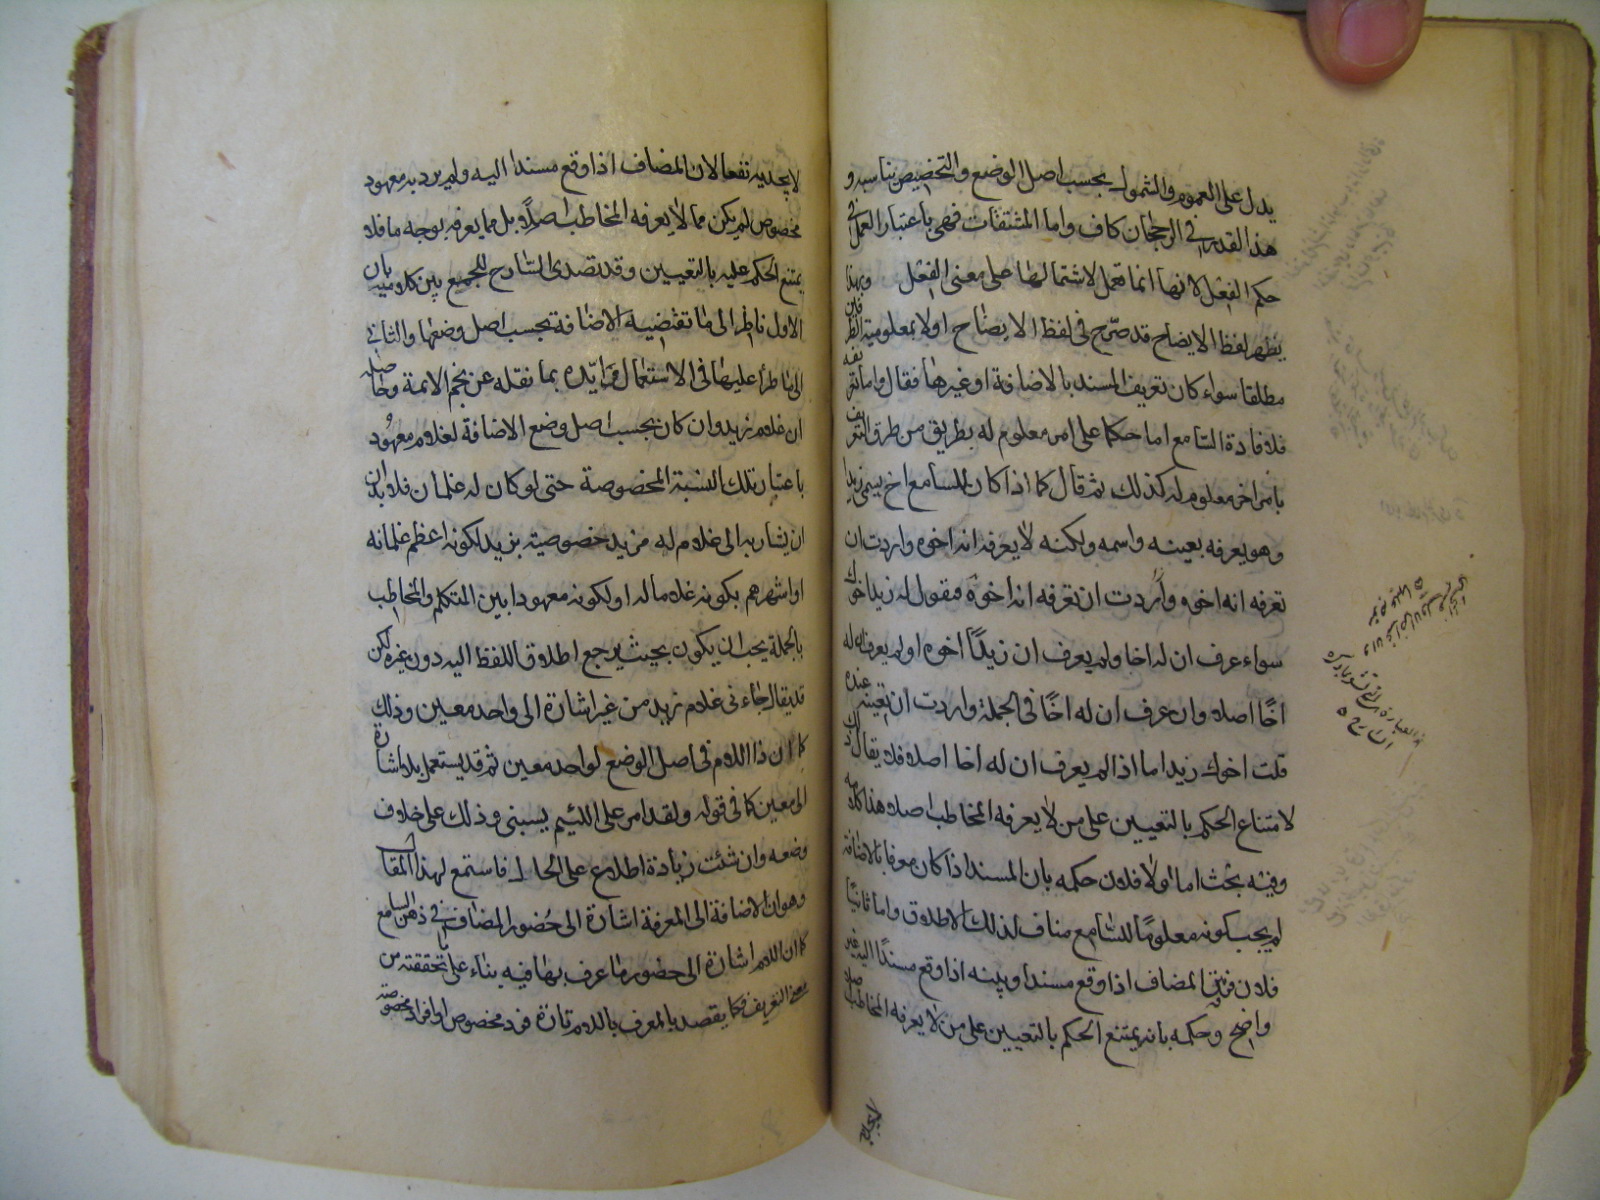 يدل على العموم والشمول بحسب اصل الوضع والتخصيص يناسبه و
هذا القدر في الرجحان كاف واما المشتقات فهي باعتبار العمل في
حكم الفعل لانها انما تعمل لاشتمالها على معنى الفعل وبهذا
يظهر لفظ الايضاح قد صرح في لفظ الايضاح اولا بمعلومية الطرفين
مطلقا سواء كان تعريف المسند بالاضافة او غيرها فقال واما تعريفه
فلافادة السامع اما حكما على امر معلوم له بطريق من طرق التعريف
بامر اخر معلوم له كذلك ثم قال كما اذا كان للسامع اخ يسمى زيدا
وهو يعرفه بعينه واسمه ولكنه لا يعرفه انه اخوه واردت ان
تعرفه انه اخوه واردت ان تعرفه انه اخوه فتقول له زيد اخوك
سواء عرف ان له اخا ولم يعرف ان زيدًا اخوه او لم يعرف ان له
اخًا اصلا وان عرف ان له اخًا في الجملة واردت ان تعينه عنده
قلت اخوك زيد اما اذا لم يعرف ان له اخا اصلا فلا يقال ذلك
لامتناع الحكم بالتعيين على من لا يعرفه المخاطب اصلا هذا كلامه
وفيه بحث اما اولا فلان حكمه بان المسند اذا كان معرفا بالاضافة
لم يجب كونه معلومًا للسامع مناف لذلك الاطلاق واما ثانيًا
فلان فرق بين المضاف اذا وقع مسندا وبينه اذا وقع مسندًا اليه غير
واضح وحكمه بانه يمتنع الحكم بالتعيين على من لا يعرفه المخاطب اصلا
لا يجديه نفعا لان المضاف اذا وقع مسندا اليه ولم يرد به معهود
مخصوص لم يكن مما لا يعرفه المخاطب اصلًا بل مما يعرفه بوجه ما فلا
يمتنع الحكم عليه بالتعيين وقد تصدى الشارح للجمع بين كلاميه بان
الاول ناظر الى ما تقتضيه الاضافة بحسب اصل وضعها والثاني
الى ما طرأ عليها في الاستعمال وايّده بما نقله عن نجم الائمة وحاصله
ان غلام زيد وان كان بحسب اصل وضع الاضافة لغلام معهود
باعتبار تلك النسبة المخصوصة حتى لو كان له غلمان فلا بد ان
ان يشار به الى غلام له مزيد خصوصية بزيد لكونه اعظم غلمانه
او اشهرهم بكونه غلاما له او لكونه معهودا بين المتكلم والمخاطب
بالجملة يجب ان يكون بحيث يرجع اطلاق اللفظ اليه دون غيره لكن
قد يقال جاءنى غلام زيد من غير اشارة الى واحد معين وذلك
كما ان ذا اللام في اصل الوضع لواحد معين ثم قد يستعمل بلا اشارة
الى معين كما في قوله ولقد امر على اللئيم يسبنى وذلك على خلاف
وضعه وان شئت زيادة اطلاع على الحال فاستمع لهذا المقال
وهو ان الاضافة الى المعرفة اشارة الى حضور المضاف في ذهن السامع
كما ان اللام اشارة الى حضور ما عرف بها فيه بناء على ما تحققته من
معنى التعريف فكما يقصد بالمعرف باللام تارة فرد مخصوص او افراد مخصوصة